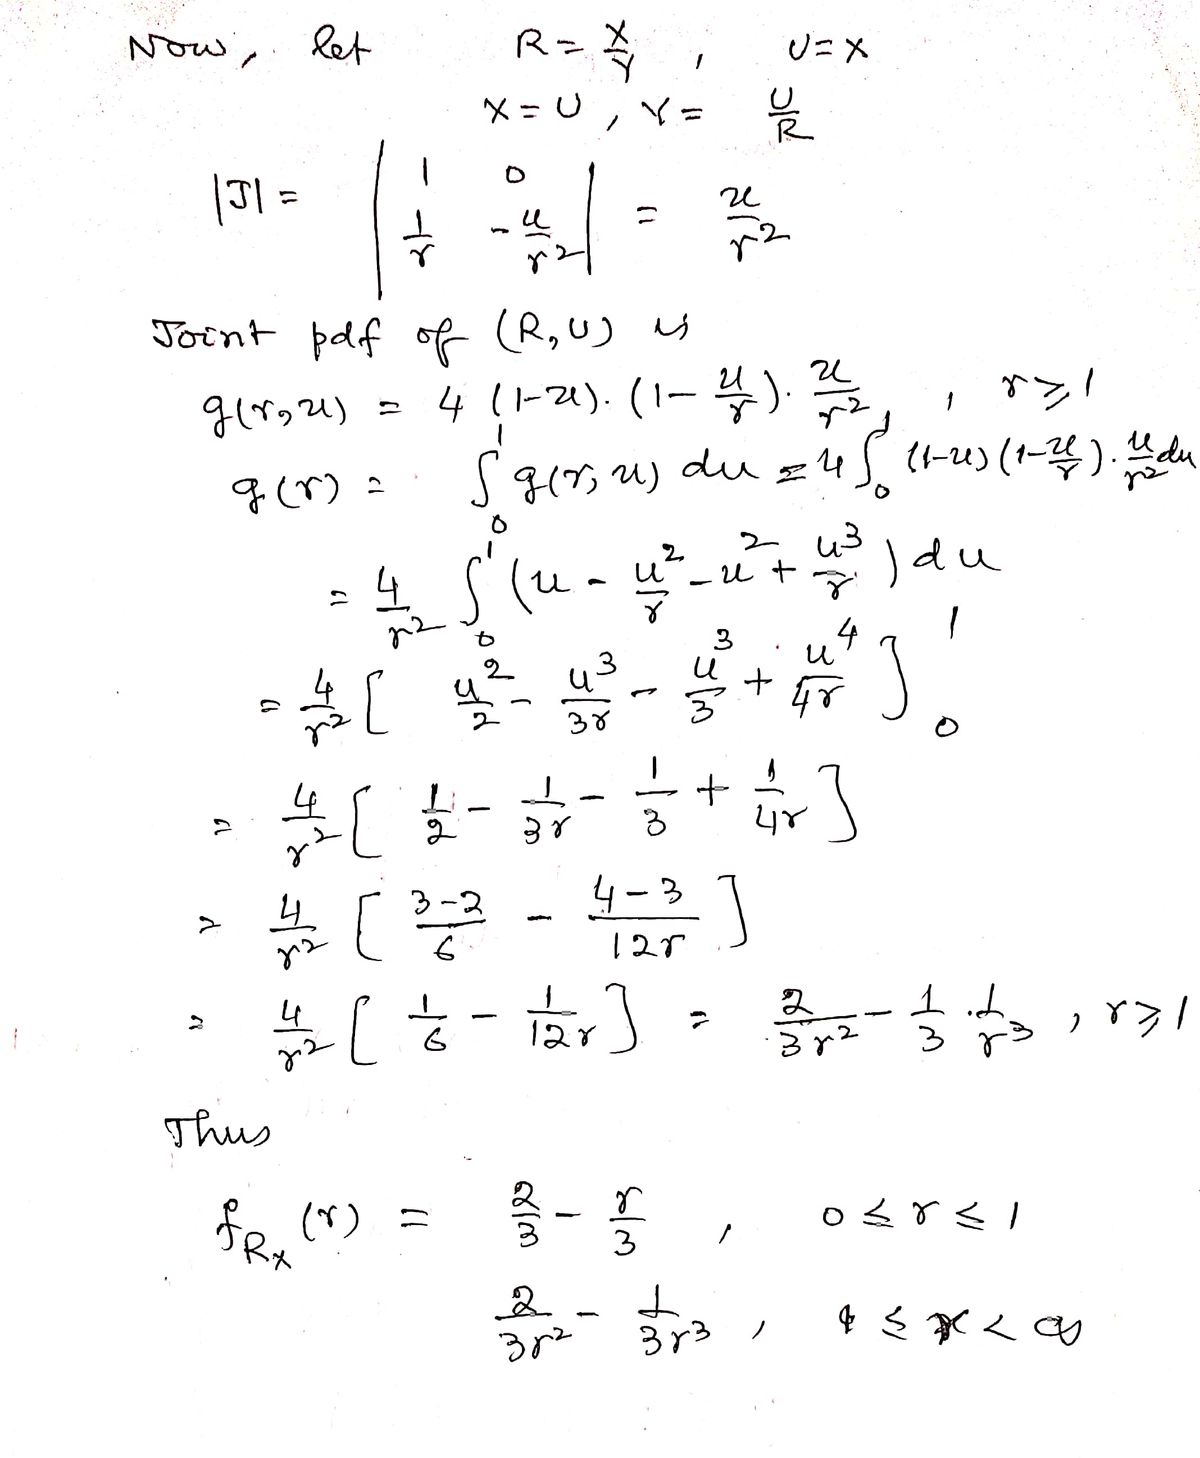 Now, let R = X/Y , U = X
X = U , Y = U/R
|J| = | 1 0 ; 1/r -u/r² | = u/r²
Joint pdf of (R, U) is
g(r, u) = 4 (1-u). (1 - u/r). u/r² , r ≥ 1
g(r) = ∫₀¹ g(r, u) du = 4 ∫₀¹ (1-u) (1 - u/r). u/r² du
= 4/r² ∫₀¹ (u - u²/r - u² + u³/r) du
= 4/r² [ u²/2 - u³/3r - u³/3 + u⁴/4r ]₀¹
= 4/r² [ 1/2 - 1/3r - 1/3 + 1/4r ]
= 4/r² [ 3-2/6 - 4-3/12r ]
= 4/r² [ 1/6 - 1/12r ] = 2/3r² - 1/3 . 1/r³ , r ≥ 1
Thus
f_Rx (r) = 2/3 - r/3 , 0 ≤ r ≤ 1
2/3r² - 1/3r³ , 1 ≤ r < ∞